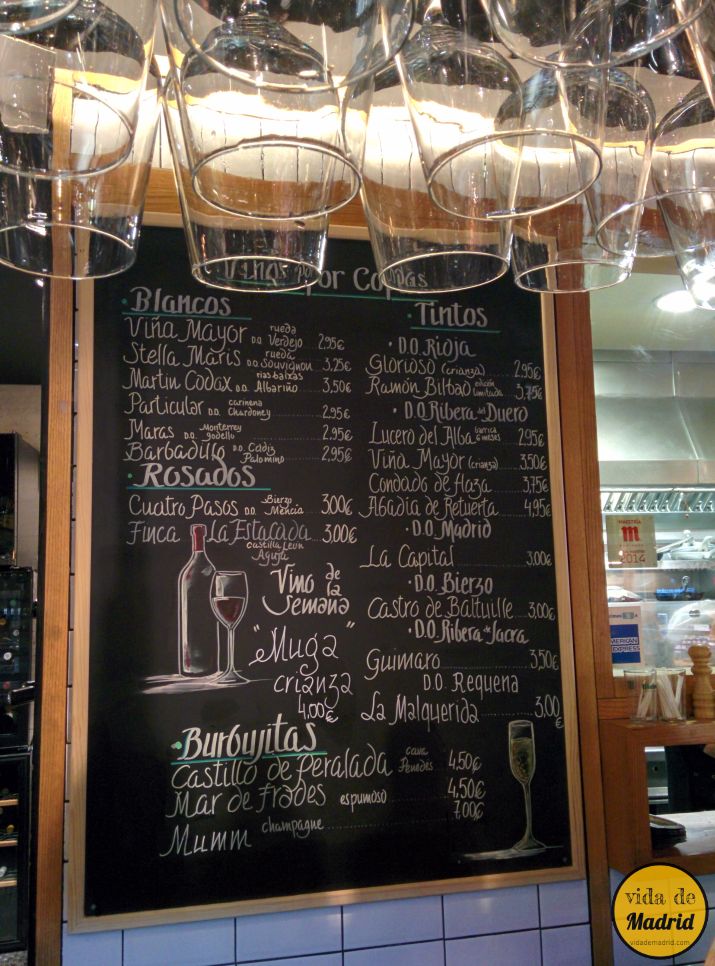 Vinos por Copas
• Blancos
Viña Mayor D.O. rueda Verdejo 2,95€
Stella Maris D.O. rueda Souvignon 3,25€
Martin Codax D.O. rias baixas Albariño 3,50€
Particular D.O. carinena Chardoney 2,95€
Maras D.O. Monterrey godello 2,95€
Barbadillo D.O. Cadiz Palomino 2,95€
• Rosados
Cuatro Pasos D.O. Bierzo Mencia 3,00€
Finca La Estacada 3,00€
Castilla Leon
Vino de la Semana
"Muga"
crianza
4,00€
Tintos
• D.O. Rioja
Glorioso (crianza) 2,95€
Ramón Bilbao edición limitada 3,75€
• D.O. Ribera del Duero
Lucero del Alba barrica 6 meses 2,95€
Viña Mayor (crianza) 3,50€
Condado de Haza 3,75€
Abadia de Retuerta 4,95€
• D.O. Madrid
La Capital 3,00€
• D.O. Bierzo
Castro de Baltuille 3,00€
• D.O. Ribera de Sacra
Guimaro 3,50€
D.O. Requena
La Malquerida 3,00€
• Burbujitas
Castillo de Peralada cava Penedes 4,50€
Mar de Frades espumoso 4,50€
Mumm champagne 7,00€
MAESTRÍA
m
2014
AMERICAN EXPRESS
vida de
Madrid
vidademadrid.com